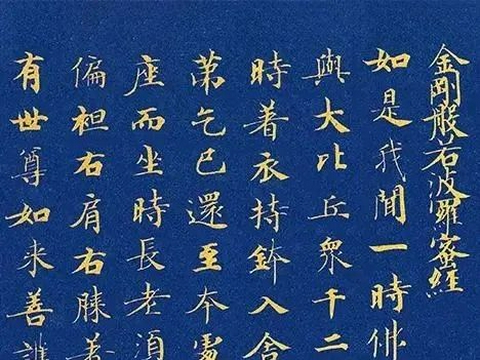 金剛般若波羅蜜經
如是我聞一時佛
與大比丘眾千二
時著衣持鉢入舍
第乞已還至本處
座而坐時長老須
偏袒右肩右膝著
有世尊如來善護